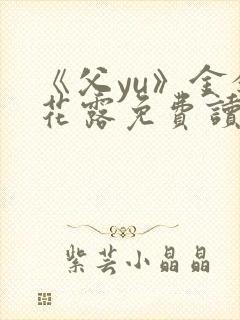 《父yu》金银
花露免费讀
紫芸小晶晶